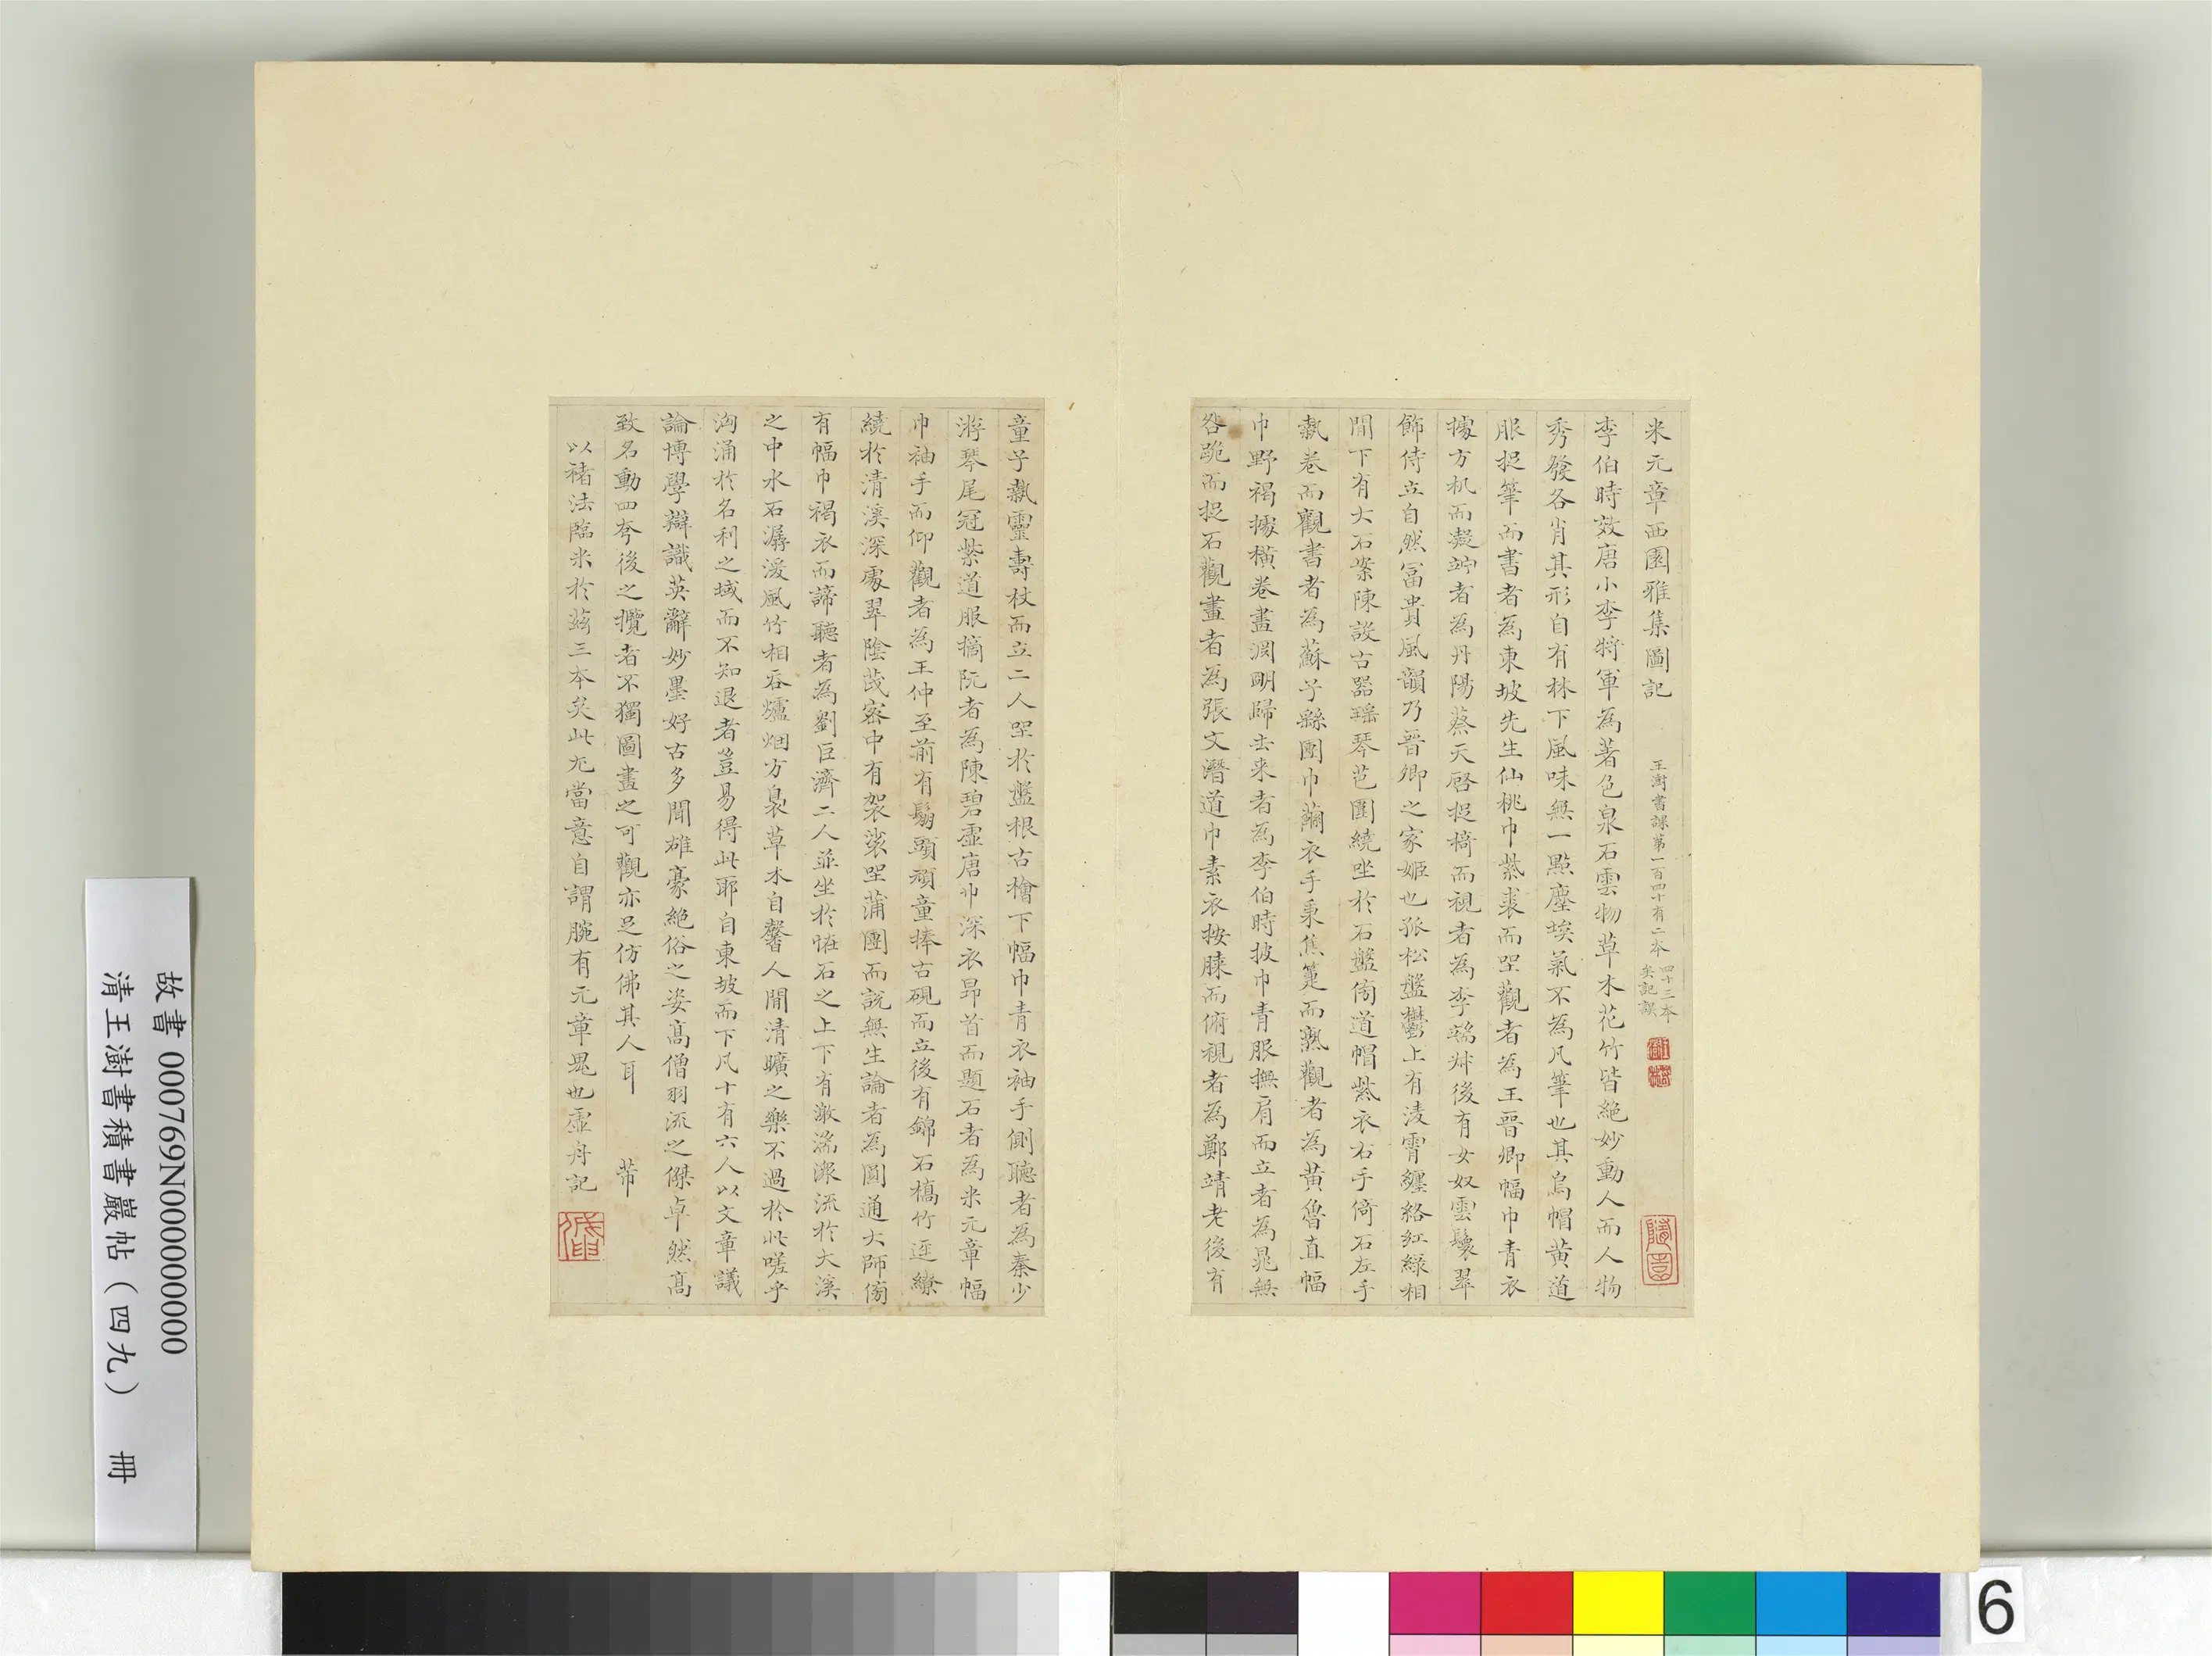 米元章西園雅集圖記
王澍書課第一百四十有二本
四十二本
矣記誤
李伯時效唐小李將軍為著色泉石雲物草木花竹皆絕妙動人而人物
秀發各肖其形自有林下風味無一點塵埃氣不為凡筆也其烏帽黃道
服捉筆而書者為東坡先生仙桃巾紫裘而坐觀者為王晉卿幅巾青衣
據方机而凝竚者為丹陽蔡天啓捉椅而視者為李端叔後有女奴雲鬟翠
飾侍立自然富貴風韻乃晉卿之家姬也孤松盤鬱上有淩霄纏絡紅綠相
間下有大石案陳設古器瑤琴芭圍繞坐於石盤傍道帽紫衣右手倚石左手
執卷而觀書者為蘇子繇團巾繭衣手秉焦箑而熟觀者為黃魯直幅
巾野褐據橫卷畫淵明歸去来者為李伯時披巾青服撫肩而立者為晁無
咎跪而捉石觀畫者為張文潛道巾素衣按膝而俯視者為鄭靖老後有
童子執靈壽杖而立二人坐於盤根古檜下幅巾青衣袖手側聽者為秦少
游琴尾冠紫道服摘阮者為陳碧虛唐巾深衣昂首而題石者為米元章幅
巾袖手而仰觀者為王仲至前有鬅頭頑童捧古硯而立後有錦石橋竹逕繚
繞於清溪深處翠陰茂密中有袈裟坐蒲團而說無生論者為圓通大師傍
有幅巾褐衣而諦聽者為劉巨濟二人並坐於恠石之上下有激湍潀流於大溪
之中水石潺湲風竹相吞爐烟方裊草木自馨人間清曠之樂不過於此嗟乎
洶涌於名利之域而不知退者豈易得此耶自東坡而下凡十有六人以文章議
論博學辯識英辭妙墨好古多聞雄豪絕俗之姿高僧羽流之傑卓然高
致名動四夸後之攬者不獨圖畫之可觀亦足仿佛其人耳　芾
以褚法臨米於茲三本矣此尤當意自謂腕有元章鬼也虛舟記
隨園
故書 000769N000000000
清王澍書積書巖帖（四九）　冊
6